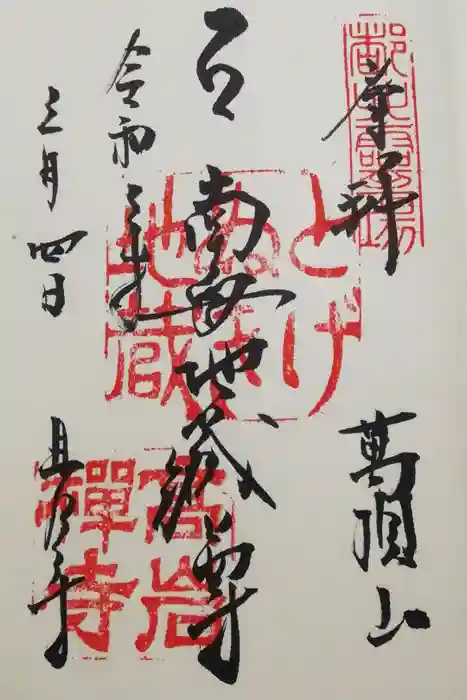 奉拜
萬頂山
南無地蔵尊
令和三年
三月四日
高岩寺
とげ
ぬき
地蔵
高岩
禪寺